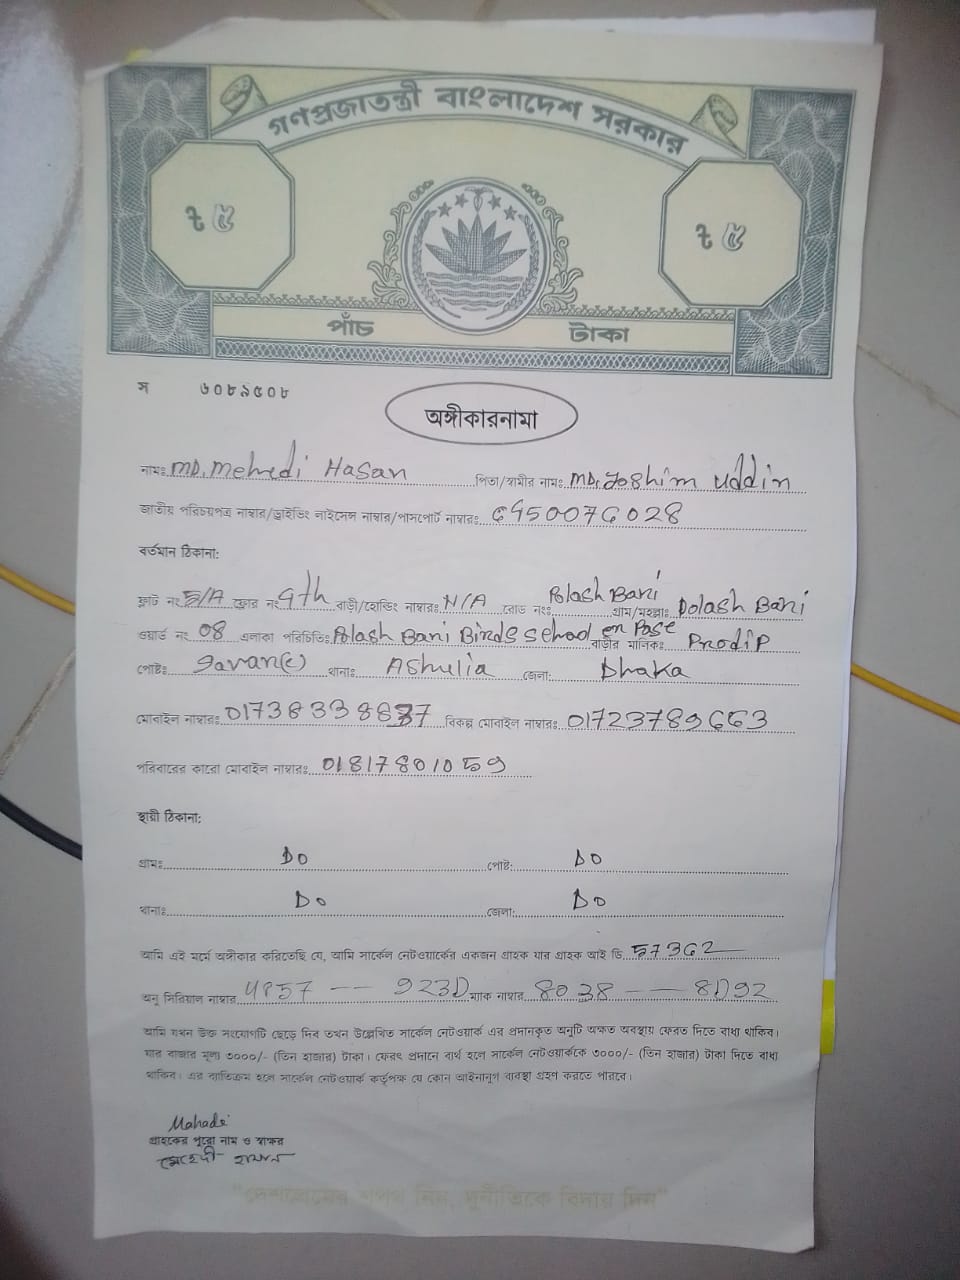 গণপ্রজাতন্ত্রী বাংলাদেশ সরকার
৳ ৫ ৳ ৫
পাঁচ টাকা
স ৬০৮৯৫০৮
অঙ্গীকারনামা
নামঃ MD. Mehedi Hasan পিতা/স্বামীর নামঃ MD. Joshim Uddin
জাতীয় পরিচয়পত্র নাম্বার/ড্রাইভিং লাইসেন্স নাম্বার/পাসপোর্ট নাম্বারঃ 6450076028
বর্তমান ঠিকানা:
ফ্লাট নং 5/A ফ্লোর নং 4th বাড়ী/হোল্ডিং নাম্বারঃ N/A রোড নংঃ Polash Bari গ্রাম/মহল্লাঃ Polash Bari
ওয়ার্ড নং 08 এলাকা পরিচিতিঃ Polash Bari Birds School বাড়ীর মালিকঃ Prodip
পোষ্টঃ Savar(c) থানাঃ Ashulia জেলা: Dhaka
মোবাইল নাম্বারঃ 01738338837 বিকল্প মোবাইল নাম্বারঃ 01723789663
পরিবারের কারো মোবাইল নাম্বারঃ 01817801059
স্থায়ী ঠিকানা:
গ্রামঃ Do পোষ্ট: Do
থানাঃ Do জেলা: Do
আমি এই মর্মে অঙ্গীকার করিতেছি যে, আমি সার্কেল নেটওয়ার্কের একজন গ্রাহক যার গ্রাহক আই ডি 57362
অনু সিরিয়াল নাম্বার 4857 -- 923D ম্যাক নাম্বার 8038 -- 8D92
আমি যখন উক্ত সংযোগটি ছেড়ে দিব তখন উল্লেখিত সার্কেল নেটওয়ার্ক এর প্রদানকৃত অনুটি অক্ষত অবস্থায় ফেরত দিতে বাধ্য থাকিব।
যার বাজার মূল্য ৩০০০/- (তিন হাজার) টাকা। ফেরৎ প্রদানে ব্যর্থ হলে সার্কেল নেটওয়ার্ককে ৩০০০/- (তিন হাজার) টাকা দিতে বাধ্য
থাকিব। এর ব্যতিক্রম হলে সার্কেল নেটওয়ার্ক কর্তৃপক্ষ যে কোন আইনানুগ ব্যবস্থা গ্রহণ করতে পারবে।
Mahadi
গ্রাহকের পূরো নাম ও স্বাক্ষর
মেহেদী হাসান
"দেশপ্রেমের শপথ নিন, দুর্নীতিকে বিদায় দিন"